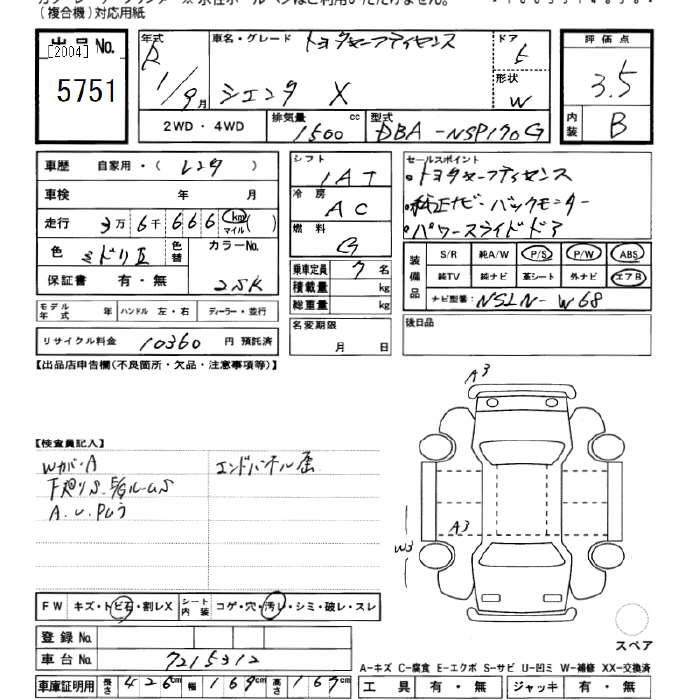 (複合機)対応用紙
出品No.
[2004]
5751
年式
R 1/9月
車名・グレード
トヨタセーフティセンス
シエンタ X
ドア
5
形状
W
評価点
3.5
内装
B
2WD・4WD
排気量 1500 cc
型式 DBA-NSP170G
車歴 自家用・( レンタ )
車検 年 月
走行 3万6千666 km マイル( )
色 ミドリⅡ
色替
カラーNo.
25K
保証書 有・無
モデル年式 年 ハンドル 左・右 ディーラー・並行
リサイクル料金 10360 円 預託済
シフト
IAT
冷房
AC
燃料
G
乗車定員 7 名
積載量 kg
総重量 kg
名変期限
月 日
セールスポイント
・トヨタセーフティセンス
・純正ナビ バックモニター
・パワースライドドア
装備品
S/R 純A/W P/S P/W ABS
純TV 純ナビ 革シート 外ナビ エアB
ナビ型番: NSLN-W68
後日品
【出品店申告欄(不良箇所・欠品・注意事項等)】
【検査員記入】
Wカバー A
エンドパネル歪
A3
A3
W3
FW キズ・トビ石・割レX
シート内装 コゲ・穴・汚レ・シミ・破レ・スレ
登録No.
車台No. 7215312
車庫証明用 長さ 426cm 幅 169cm 高さ 167cm
スペア
A-キズ C-腐食 E-エクボ S-サビ U-凹ミ W-補修 XX-交換済
工具 有・無 ジャッキ 有・無